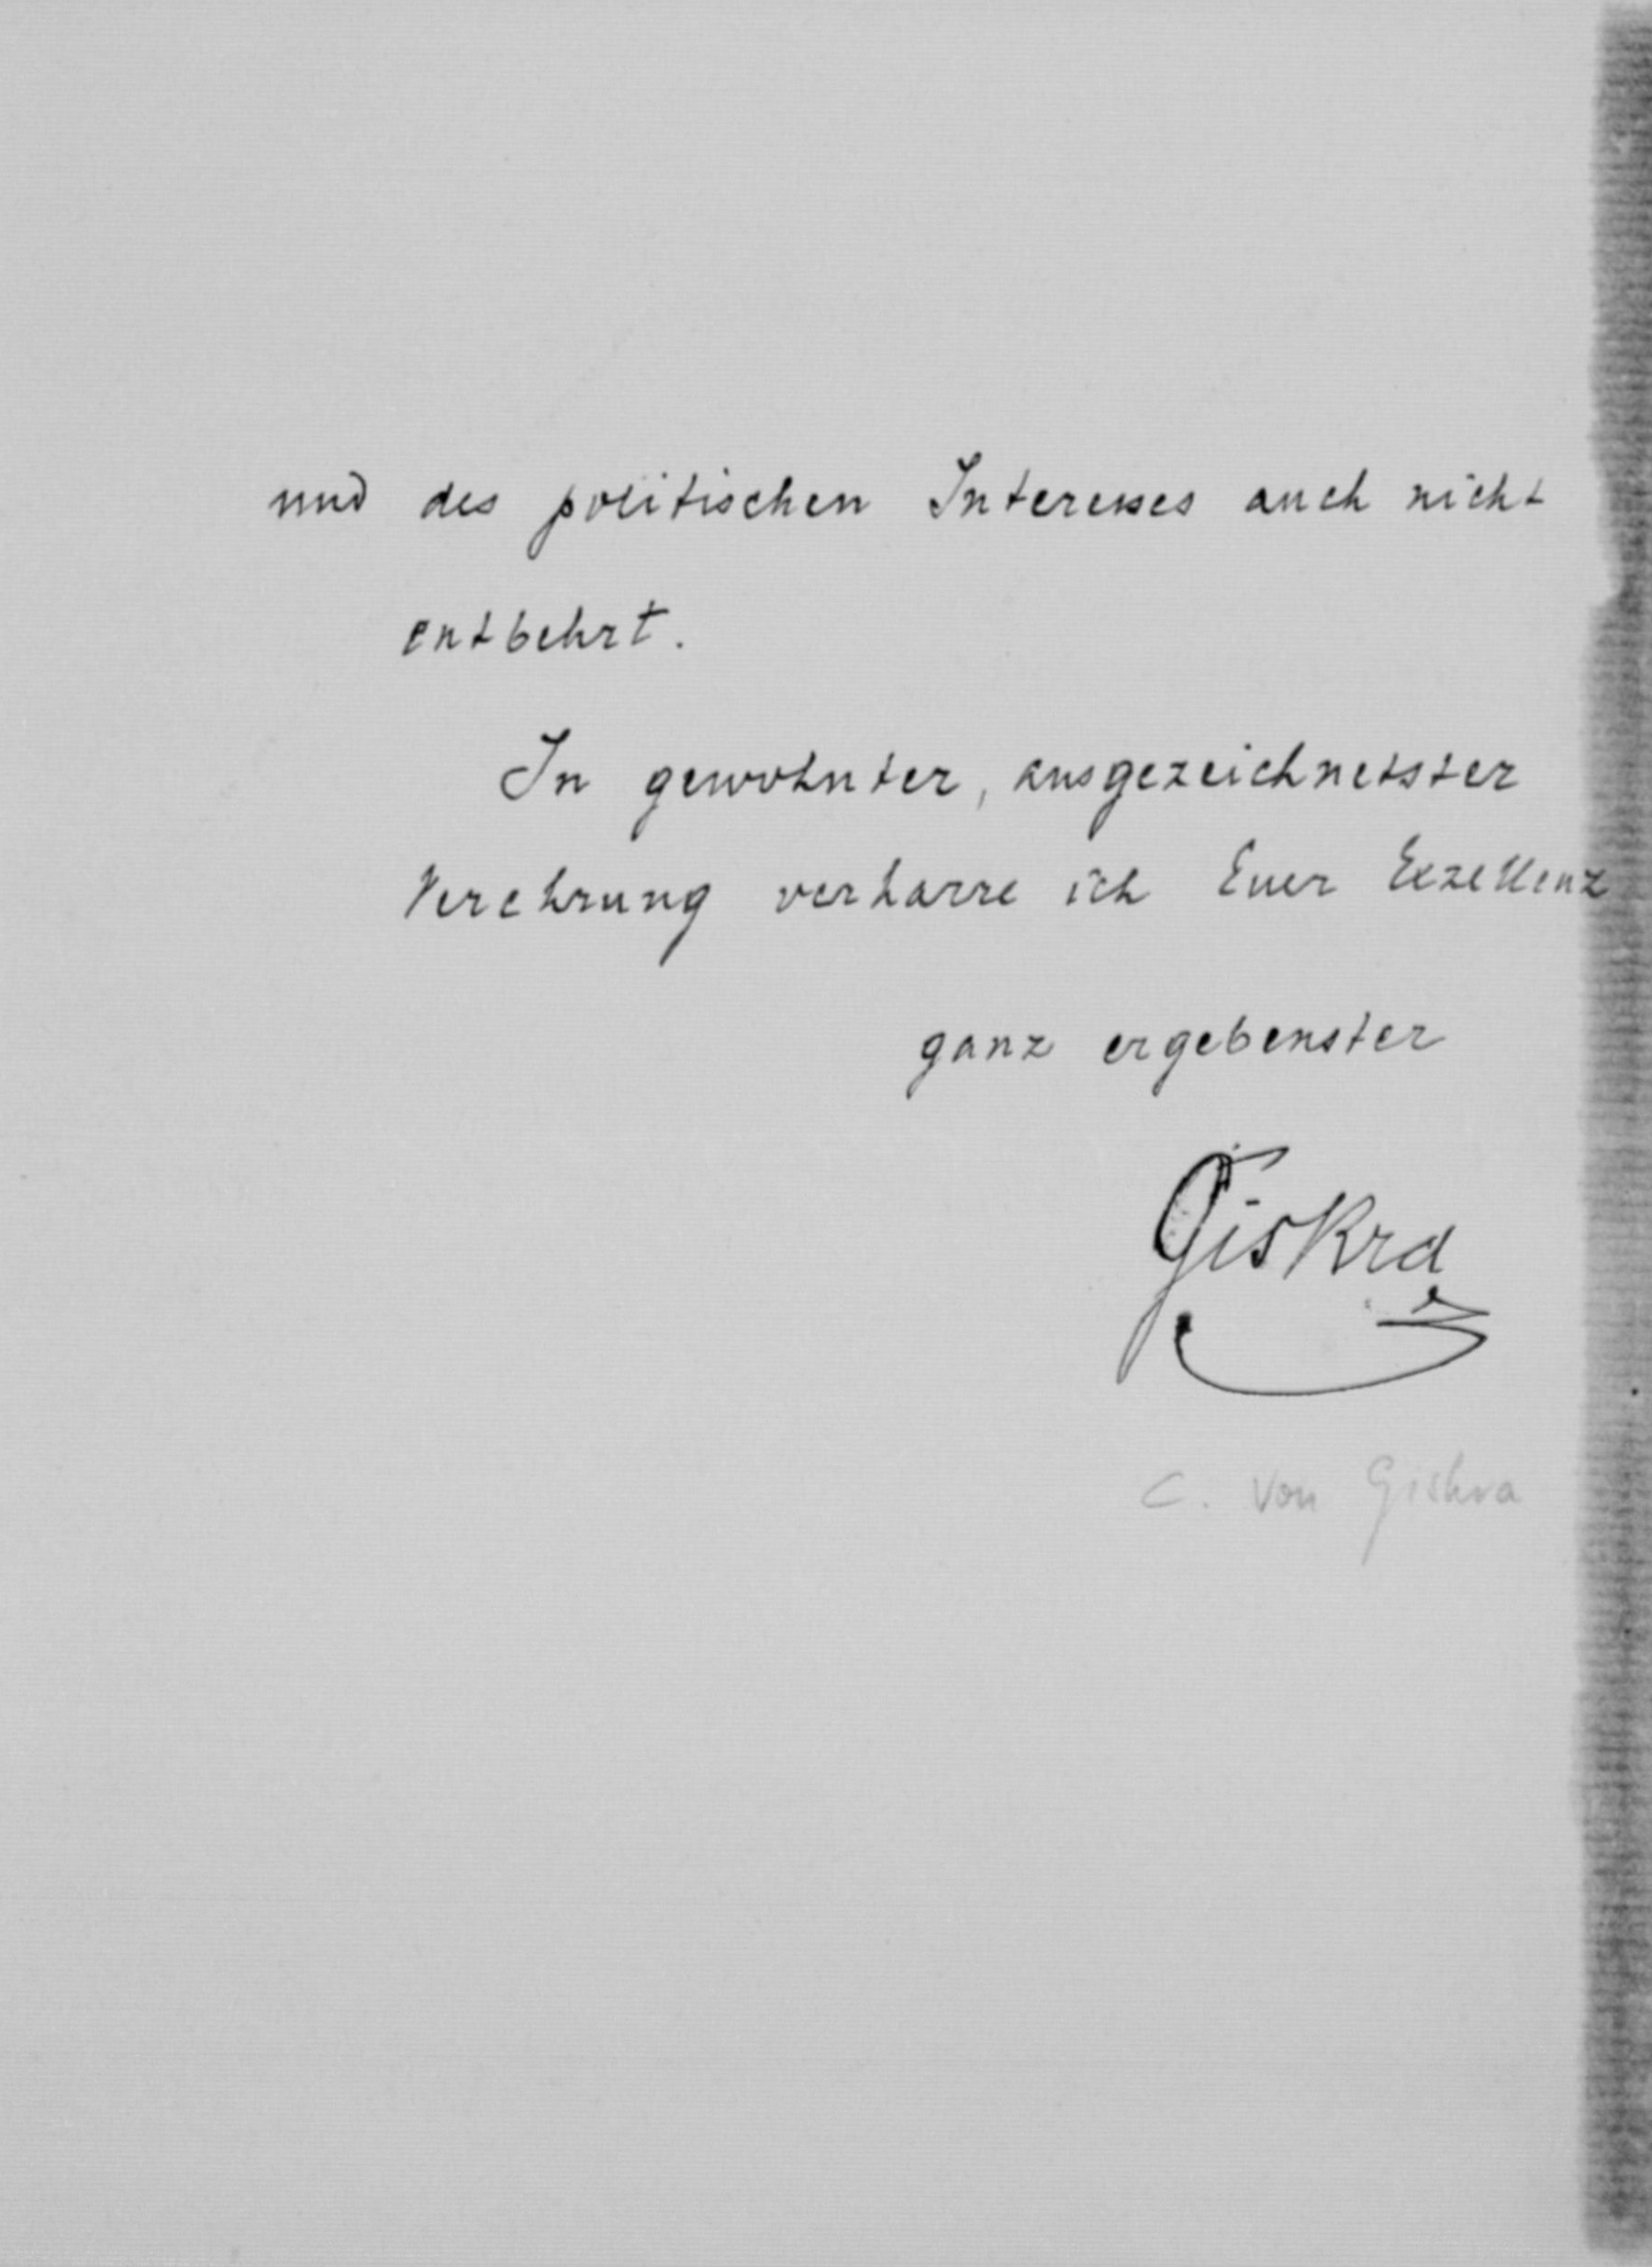 und des politischen Interesses auch nicht
entbehrt.
In gewohnter, ausgezeichnetster
Verehrung verharre ich Euer Exzellenz
ganz ergebenster
Giskra
C. von Giskra